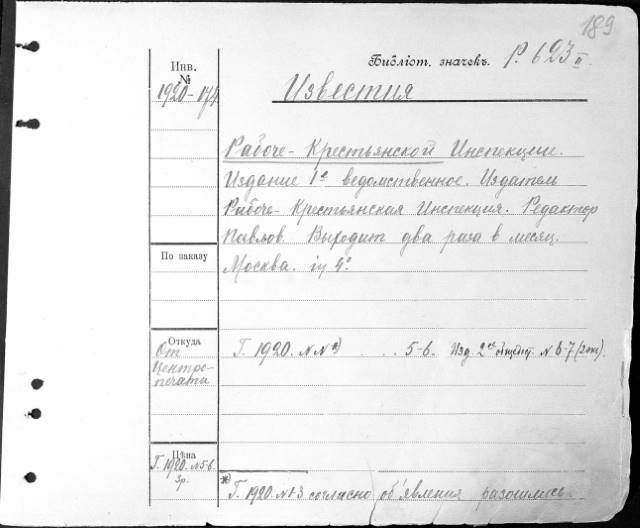 189
Библіот. значекъ. Р. 623 II
Инв.
№
1920-174
Известия
Рабоче-Крестьянской Инспекции.
Издание 1е ведомственное. Издатель
Рабоче-Крестьянская Инспекция. Редактор
Павлов. Выходит два раза в месяц.
Москва. in 4°.
По заказу
Откуда
От
Центро-
печати
Г. 1920. NN*) . . . 5-6. Изд. 2ое N 6-7
Цѣна
Г. 1920. N 5-6.
3р.
*)
Г. 1920. N 1-3 согласно об'явления разошлись